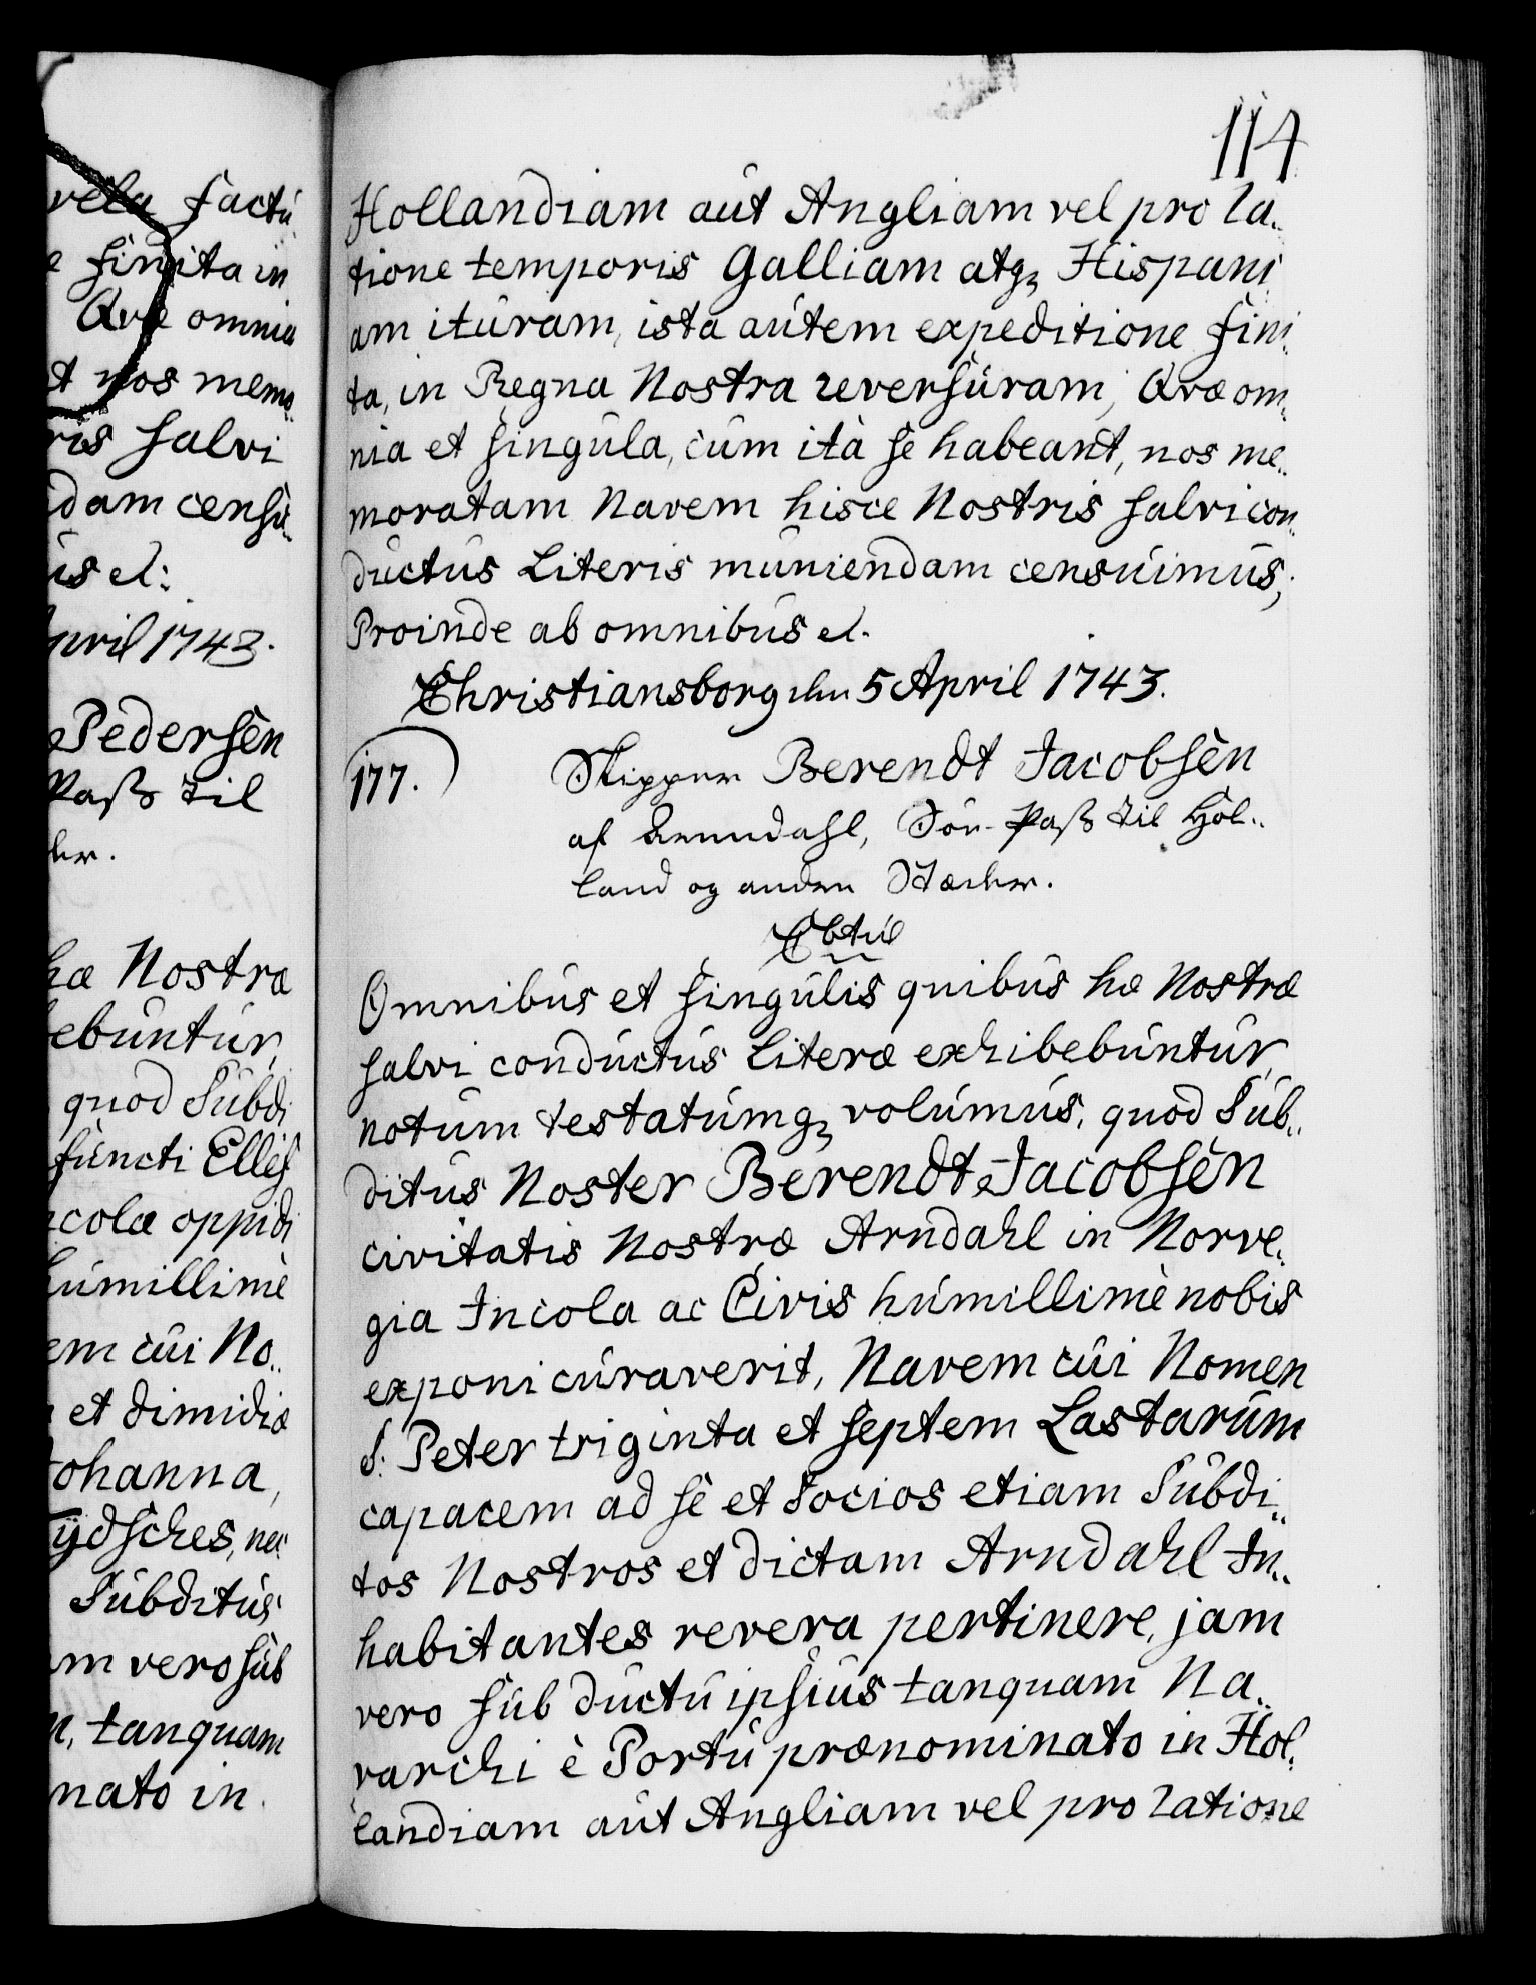 vela factu
e finita in
Qvæ omnia
t nos memo
ris salvi
dam censu
us et:
April 1743.
Pedersen
Pass til
der.
hæ Nostræ
ebuntur,
quod Subdi
functi Elles
ncolæ oppidi
humillimè
em cui No
et dimidiæ
Johanna,
Tÿdsches, nec
Subditus
m vero sub
n, tanquam
nato in
114
Hollandiam aut Angliam vel pro ra
tione temporis Galliam atq3 Hispani
am ituram, ista autem expeditione fini
ta, in Regna Nostra reversuram, Qvæ om
nia et singula, cum ità se habeant, nos me
moratam Navem hisce Nostris salvi con
ductus Literis muniendam censuimus;
Proinde ab omnibus et.
Christiansborg den 5 April 1743.
177.) Skipper Berendt Jacobsen
af Arendahl, Søe-Pass til Hol
land og andre Stæder.
Omnibus et singulis quibus hæ Nostræ
salvi conductus Literæ exhibebuntur,
notum testatumq3 volumus, quod Sub
ditus Noster Berendt Jacobsen
civitatis Nostræ Arndahl in Norve
gia Incola ac Civis humillimè nobis
exponi curaverit, Navem cui Nomen
S: Peter triginta et septem Lastarum
capacem ad se et Socios etiam Subdi
tos Nostros et dictam Arndahl In
habitantes revera pertinere, jam
vero sub ductu ipsius tanquam Na
varchi è Portu prænominato in Hol
landiam aut Angliam vel pro ratione